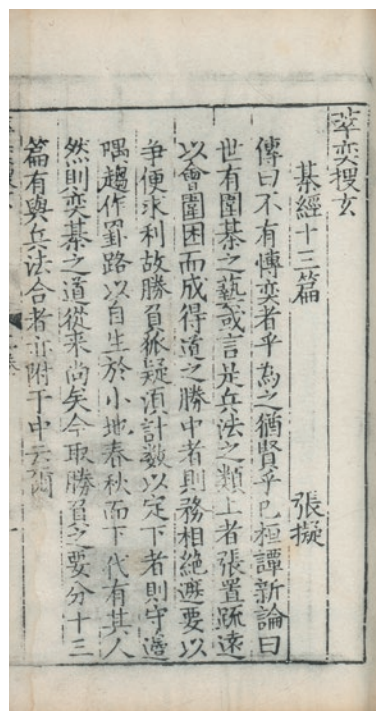 萃奕搜玄
棊經十三篇 張擬
傳曰不有愽奕者乎為之猶賢乎已桓譚新論曰
世有圍棊之藝或言是兵法之類上者張置踈遠
以會圍困而成得道之勝中者則務相絶遮要以
争便求利故勝負狐疑湏計數以定下者則守邉
隅趨作罫路以自生於小地春秋而下代有其人
然則奕棊之道從来尚矣今取勝負之要分十三
篇有與兵法合者亦附于中云爾